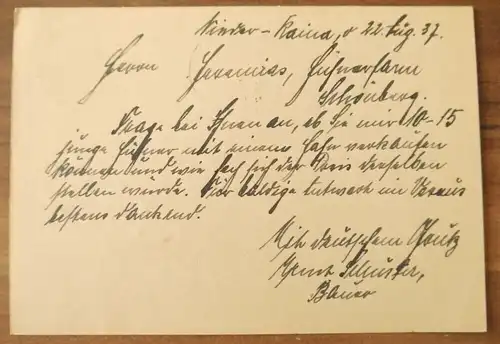 Nieder-Kaina, d 22. Aug. 37.
Herrn Jeremias, Hühnerfarm
Schönberg.
Frage bei Ihnen an, ob Sie mir 10-15
junge Hühner mit einem Hahn verkaufen
können und wie hoch sich der Preis derselben
stellen würde. Für baldige Antwort im Voraus
bestens dankend.
Mit deutschem Gruß
Ernst Schuster,
Bauer